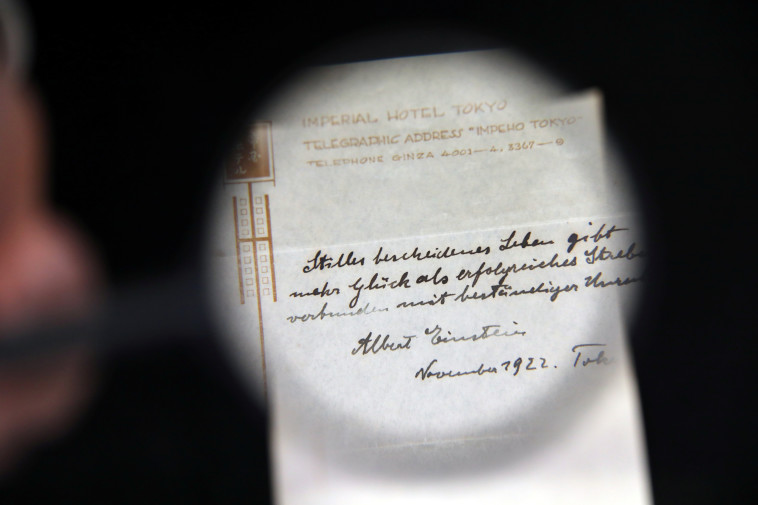 IMPERIAL HOTEL TOKYO
TELEGRAPHIC ADDRESS "IMPEHO TOKYO"
TELEPHONE GINZA 4001—4, 3367—9
Stilles bescheidenes Leben gibt
mehr Glück als erfolgreiches
verbunden mit beständiger
Albert Einstein
November 1922.